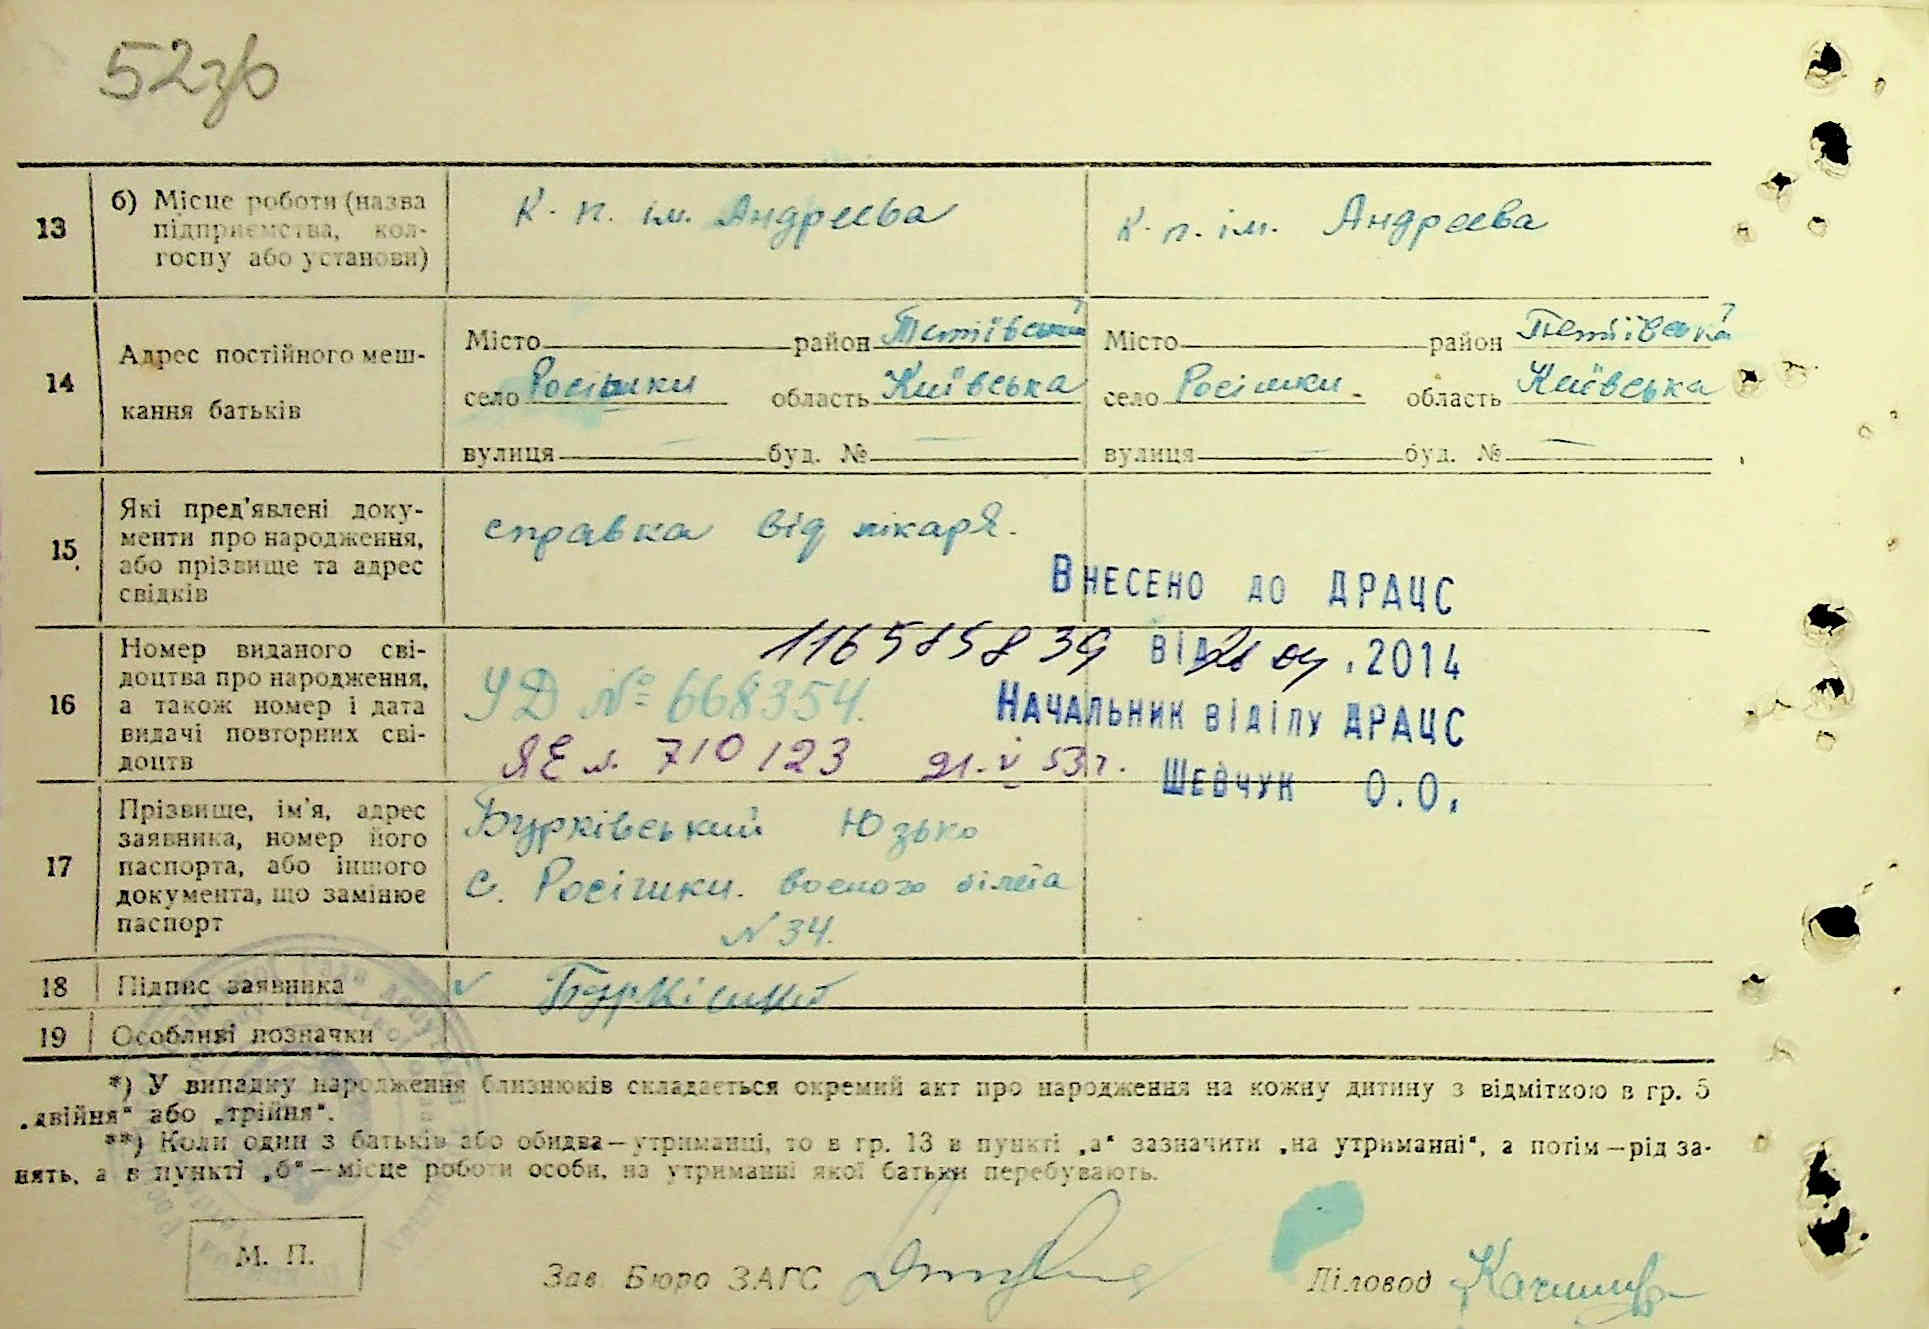 52зв
13 б) Місце роботи (назва К. п. ім. Андреєва К. п. ім. Андреєва
підприємства, кол-
госпу або установи)
14 Адрес постійного меш-
кання батьків
Місто район Тетіївський Місто район Тетіївська
село Росішки область Київська село Росішки. область Київська
вулиця — буд. № — вулиця — буд. № —
15. Які пред'явлені доку- справка від лікаря.
менти про народження,
або прізвище та адрес
свідків
Внесено до ДРАЦС
16 Номер виданого сві-
доцтва про народження,
а також номер і дата
видачі повторних сві-
доцтв
від .2014
УД № 668354.
Начальник відділу ДРАЦС
ЯЕ № 710123 21.V 53 г.
Шевчук О.О.
17 Прізвище, ім'я, адрес
заявника, номер його
паспорта, або іншого
документа, що замінює
паспорт
Бурківський Юзько
с. Росішки. воєного білєта
N 34.
18 Підпис заявника
19 Особливі позначки
*) У випадку народження близнюків складається окремий акт про народження на кожну дитину з відміткою в гр. 5
„двійня“ або „трійня“.
**) Коли один з батьків або обидва—утриманці, то в гр. 13 в пункті „а“ зазначити „на утриманні“, а потім—рід за-
нять, а в пункті „б“—місце роботи особи, на утриманні якої батьки перебувають.
М. П.
Зав. Бюро ЗАГС Діловод